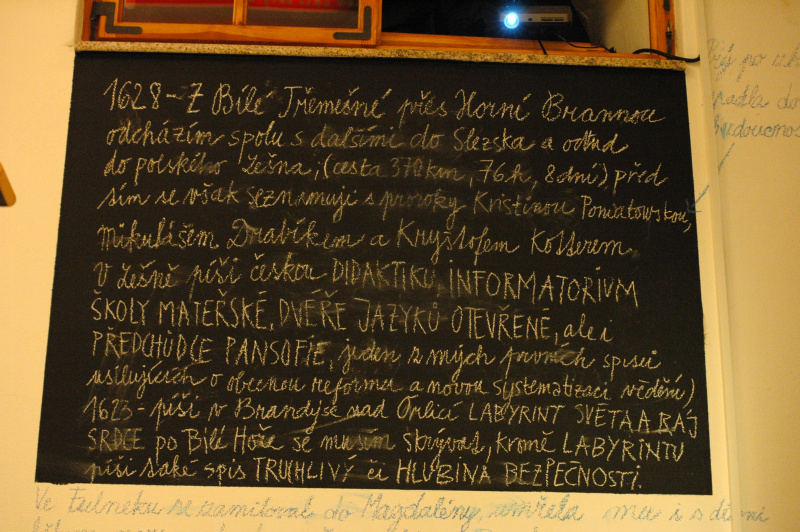 1628 - Z Bílé Třemešné přes Horní Brannou
odcházím spolu s dalšími do Slezska a odtud
do polského Lešna, (cesta 370 km, 76 h, 8 dní) před
tím se však seznamuji s proroky Kristinou Poniatowskou,
Mikulášem Drabíkem a Kryštofem Kotterem.
V Lešně píši českou DIDAKTIKU, INFORMATORIUM
ŠKOLY MATEŘSKÉ, DVÉŘE JAZYKŮ OTEVŘENÉ, ale i
PŘEDCHŮDCE PANSOFIE, jeden z mých prvních spisů
usilujících o obecnou reformu a novou systematizaci vědění)
1623 - píši v Brandýse nad Orlicí LABYRINT SVĚTA A RÁJ
SRDCE po Bílé Hoře se musím skrývat, kromě LABYRINTU
píši také spis TRUCHLIVÝ či HLUBINA BEZPEČNOSTI.
Ve Fulneku se zamiloval do Magdalény, umřela mu i s dětmi
po
padla do
budoucnos